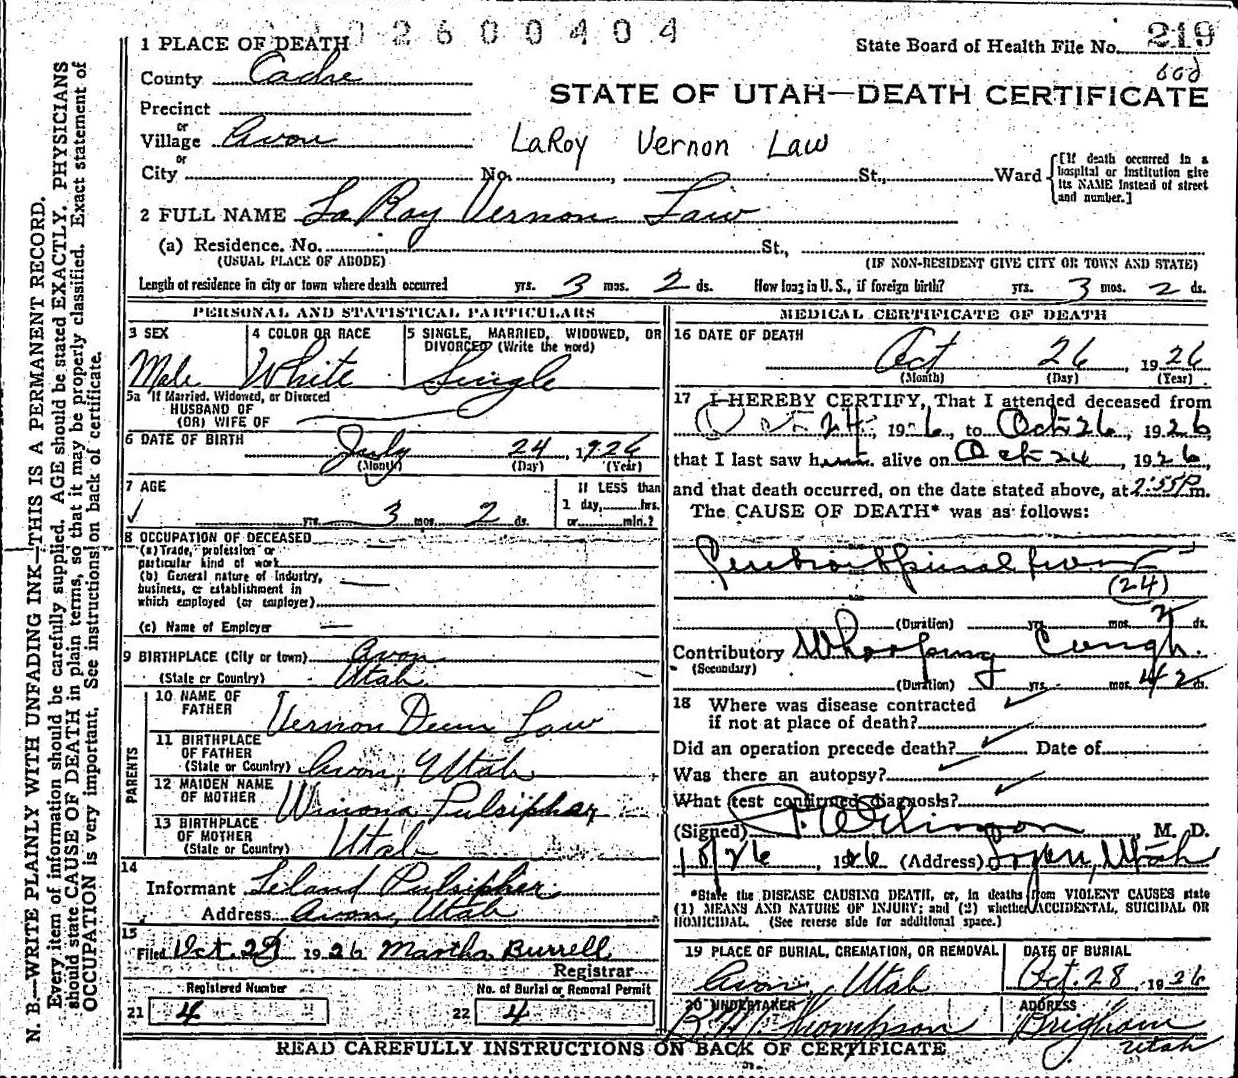 02600404
State Board of Health File No. 219
1 PLACE OF DEATH
County Cache
STATE OF UTAH—DEATH CERTIFICATE
Precinct
or
Village Avon
LaRoy Vernon Law
or
City No. , St., Ward
[If death occurred in a hospital or institution give its NAME instead of street and number.]
2 FULL NAME LaRoy Vernon Law
(a) Residence. No. St.,
(USUAL PLACE OF ABODE) (IF NON-RESIDENT GIVE CITY OR TOWN AND STATE)
Length of residence in city or town where death occurred yrs. 3 mos. 2 ds. How long in U. S., if foreign birth? yrs. 3 mos. 2 ds.
PERSONAL AND STATISTICAL PARTICULARS
3 SEX Male
4 COLOR OR RACE White
5 SINGLE, MARRIED, WIDOWED, OR DIVORCED (Write the word) Single
5a If Married, Widowed, or Divorced
HUSBAND OF
(OR) WIFE OF
6 DATE OF BIRTH July 24, 1926
(Month) (Day) (Year)
7 AGE
yrs. 3 mos. 2 ds.
If LESS than
1 day, hrs.
or min.?
8 OCCUPATION OF DECEASED
(a) Trade, profession or
particular kind of work
(b) General nature of Industry,
business, or establishment in
which employed (or employer)
(c) Name of Employer
9 BIRTHPLACE (City or town) Avon
(State or Country) Utah
PARENTS
10 NAME OF FATHER Vernon Dunn Law
11 BIRTHPLACE OF FATHER
(State or Country) Avon, Utah
12 MAIDEN NAME OF MOTHER Winona Pulsipher
13 BIRTHPLACE OF MOTHER
(State or Country) Utah
14
Informant Leland Pulsipher
Address Avon, Utah
15
Filed Oct. 29 1926 Martha Burrell
Registrar
Registered Number
21 4
No. of Burial or Removal Permit
22 4
MEDICAL CERTIFICATE OF DEATH
16 DATE OF DEATH
Oct 26 1926
(Month) (Day) (Year)
17 I HEREBY CERTIFY, That I attended deceased from
Oct 24, 1926, to Oct 26, 1926,
that I last saw him alive on Oct 24, 1926,
and that death occurred, on the date stated above, at 2:55 P. m.
The CAUSE OF DEATH* was as follows:
(24)
(Duration) yrs. mos. 2 ds.
Contributory Whooping Cough.
(Secondary)
(Duration) yrs. mos. 42 ds.
18 Where was disease contracted
if not at place of death?
Did an operation precede death? Date of
Was there an autopsy?
What test confirmed diagnosis?
(Signed) , M. D.
10/26, 1926 (Address) Utah
*State the DISEASE CAUSING DEATH, or, in deaths from VIOLENT CAUSES state
(1) MEANS AND NATURE OF INJURY; and (2) whether ACCIDENTAL, SUICIDAL OR
HOMICIDAL. (See reverse side for additional space.)
19 PLACE OF BURIAL, CREMATION, OR REMOVAL
Avon, Utah
DATE OF BURIAL
Oct. 28, 1926
20 UNDERTAKER
Thompson
ADDRESS
Brigham
Utah
READ CAREFULLY INSTRUCTIONS ON BACK OF CERTIFICATE
N. B.—WRITE PLAINLY WITH UNFADING INK—THIS IS A PERMANENT RECORD.
Every item of information should be carefully supplied. AGE should be stated EXACTLY. PHYSICIANS
should state CAUSE OF DEATH in plain terms, so that it may be properly classified. Exact statement of
OCCUPATION is very important. See instructions on back of certificate.